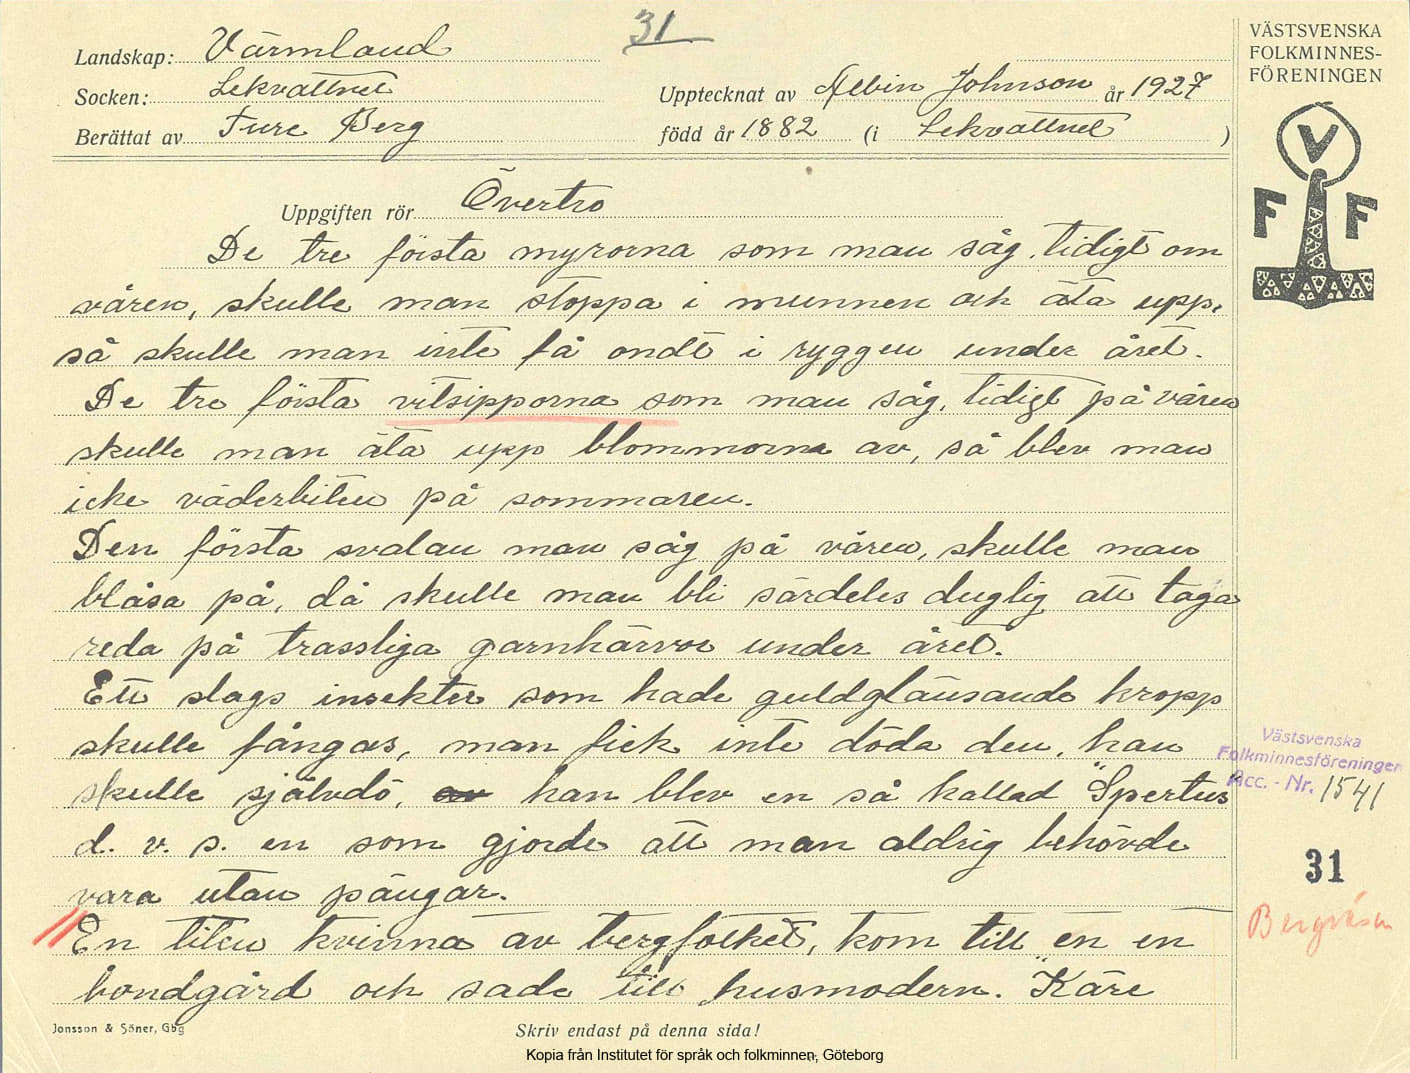 31
Landskap: Värmland
Socken: Lekvattnet
Upptecknat av Albin Johnson år 1927
Berättat av Ture Berg
född år 1882 (i Lekvattnet )
VÄSTSVENSKA
FOLKMINNES-
FÖRENINGEN
V
F F
Uppgiften rör Övertro
De tre första myrorna som man såg, tidigt om
våren, skulle man stoppa i munnen och äta upp,
så skulle man inte få ondt i ryggen under året.
De tre första vitsipporna som man såg, tidigt på våren
skulle man äta upp blommorna av, så blev man
icke väderbiten på sommaren.
Den första svalan man såg på våren, skulle man
blåsa på, då skulle man bli särdeles duglig att taga
reda på trassliga garnhärvor under året.
Ett slags insekter som hade guldglänsande kropp
skulle fångas, man fick inte döda den, han
skulle självdö, han blev en så kallad "Spertus
d. v. s. en som gjorde att man aldrig behövde
vara utan pängar.
En liten kvinna av bergfolket, kom till en en
bondgård och sade till husmodern. "Käre
Västsvenska
Folkminnesföreningen
Acc. - Nr. 1541
31
Bergväsen
Jonsson & Söner, Gbg
Skriv endast på denna sida!
Kopia från Institutet för språk och folkminnen, Göteborg